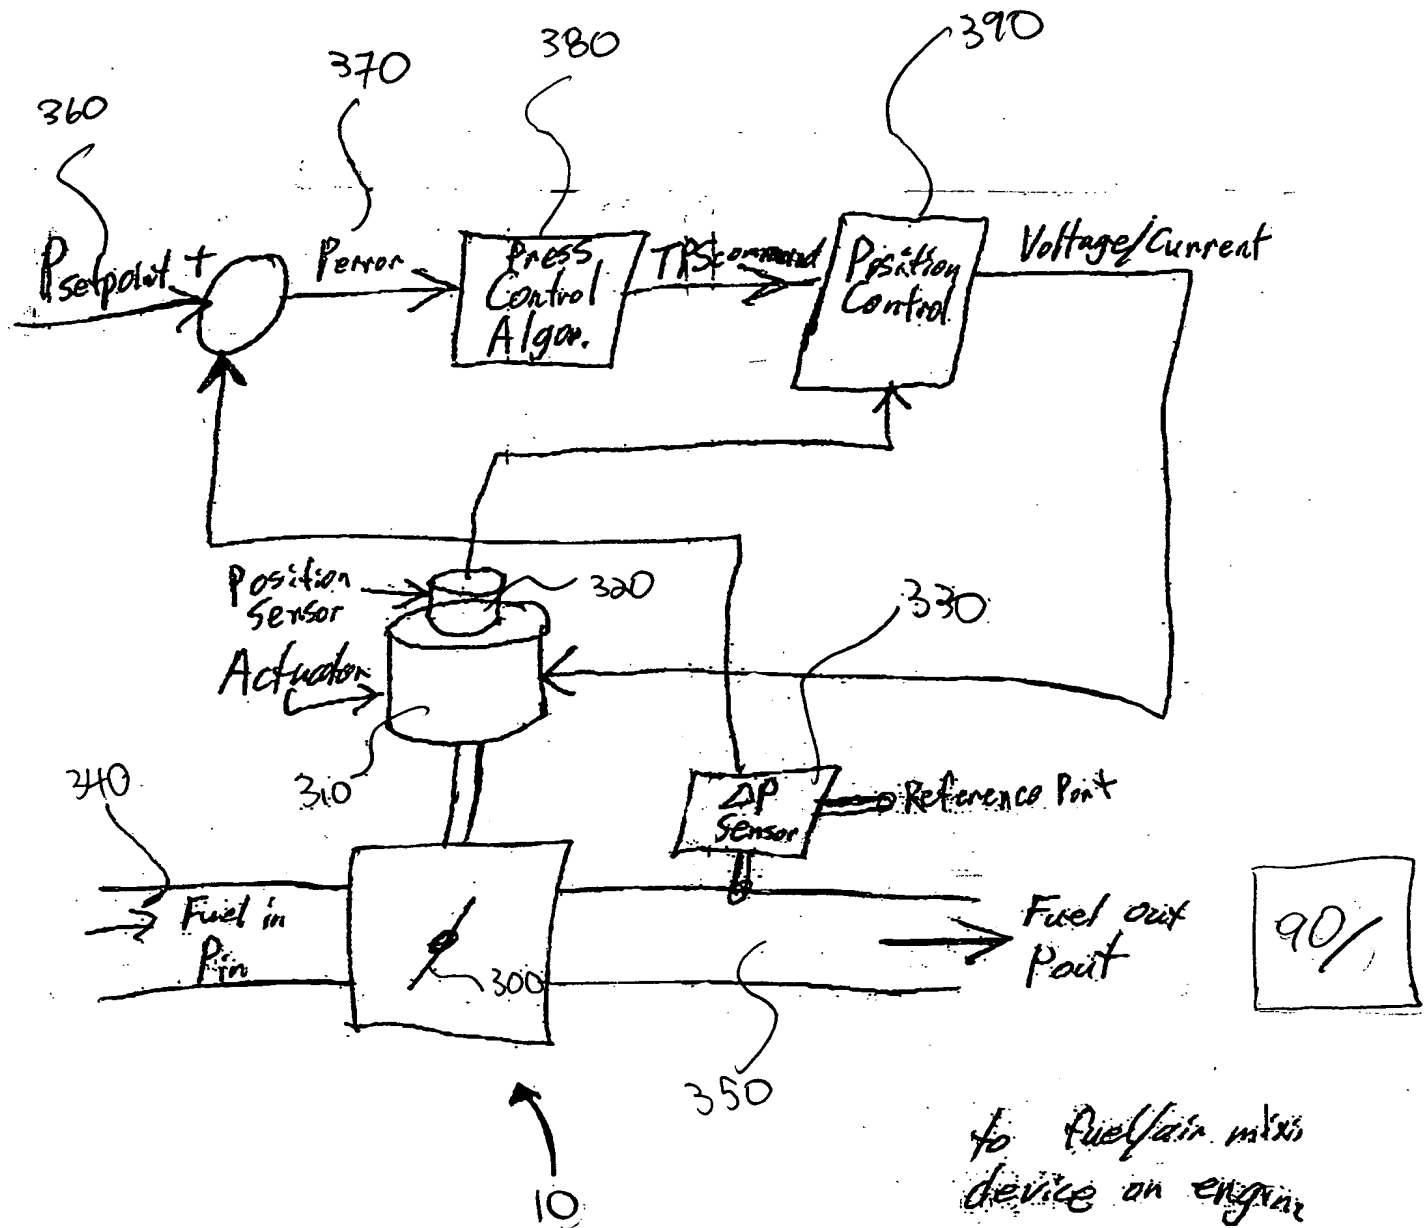 390
380
370
360
Psetpoint +
Perror
Press
Control
Algor.
TPScommand
Position
Control
Voltage/Current
Position
Sensor
320
330
Actuator
310
340
ΔP
Sensor
Reference Port
Fuel in
Pin
300
Fuel out
Pout
90/
350
10
to fuel/air mixin
device on engine